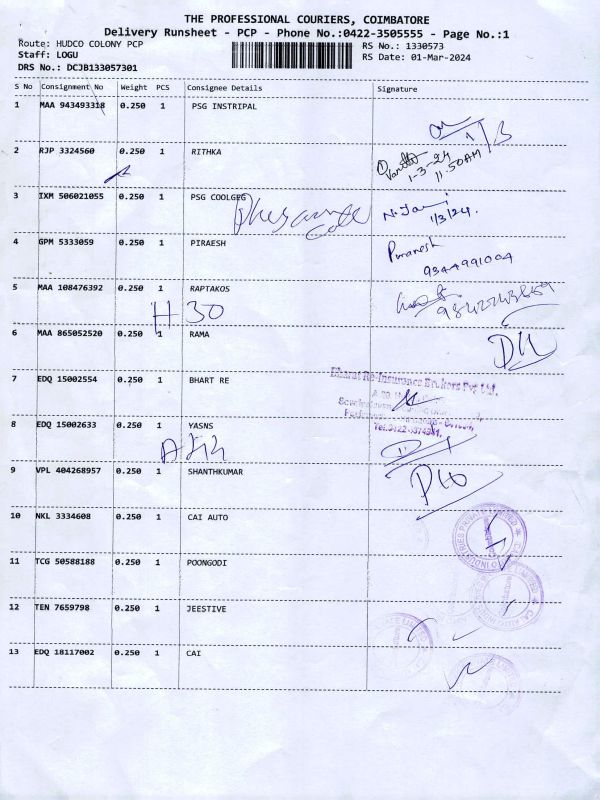 THE PROFESSIONAL COURIERS, COIMBATORE
Delivery Runsheet - PCP - Phone No.:0422-3505555 - Page No.:1
Route: HUDCO COLONY PCP RS No.: 1330573
Staff: LOGU RS Date: 01-Mar-2024
DRS No.: DCJB133057301
S No Consignment No Weight PCS Consignee Details Signature
1 MAA 943493318 0.250 1 PSG INSTRIPAL
2 RJP 3324560 0.250 1 RITHKA
1-3-24
11.50AM
3 IXM 506021055 0.250 1 PSG COOLGEG
1/3/24.
4 GPM 5333059 0.250 1 PIRAESH
9344991004
5 MAA 108476392 0.250 1 RAPTAKOS
H 30
6 MAA 865052520 0.250 1 RAMA
7 EDQ 15002554 0.250 1 BHART RE
Bharat Re-Insurance Brokers Pvt Ltd.
8 EDQ 15002633 0.250 1 YASNS
9 VPL 404268957 0.250 1 SHANTHKUMAR
10 NKL 3334608 0.250 1 CAI AUTO
11 TCG 50588188 0.250 1 POONGODI
12 TEN 7659798 0.250 1 JEESTIVE
13 EDQ 18117002 0.250 1 CAI